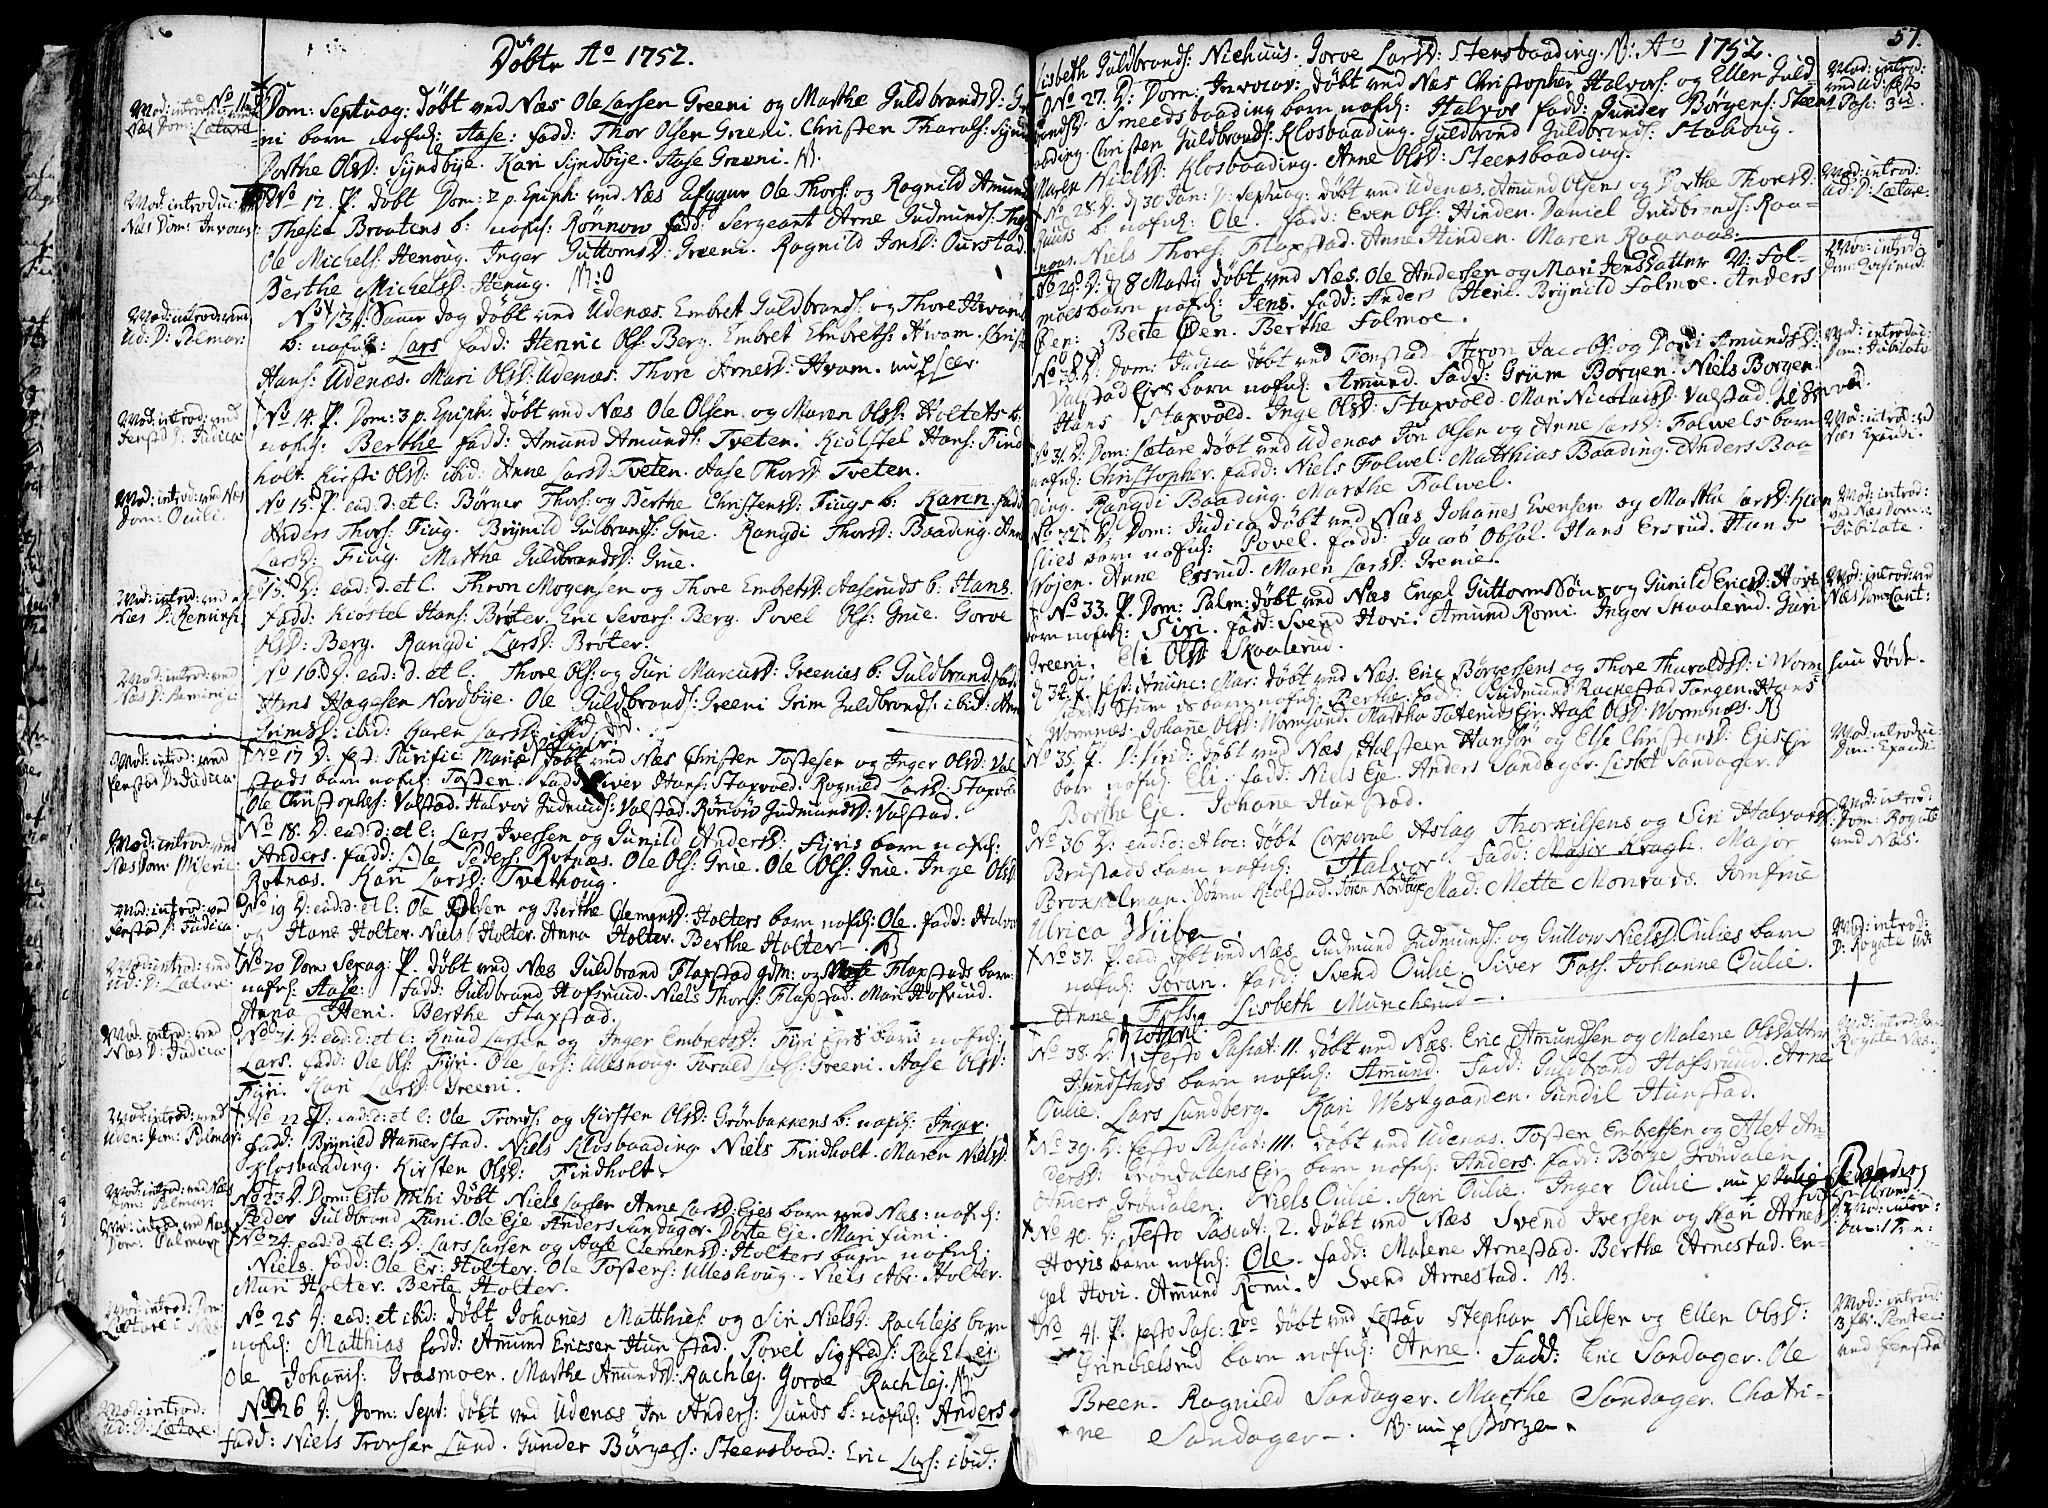 Döbte Ao 1752.
Mod: introd: ved
Næs Dom: Lætare
No 11
Dom: Septuag: döbt ved Næs Ole Larsen Greeni og Marthe Guldbrandsd: Gre-
ni barn nafnl: Aase: fadd: Thor Olsen Greeni. Christen Tharalds: Syndb
Dorthe Olsd: Syndbye. Kari Syndbye. Aase Greeni. N.
Mod: introduc: ved
Næs Dom: Invocav:
No 12. P. döbt Dom: 2 p. Epiph: ved Næs Ole Thors: og Ragnild Amunds
Thesie Braatens b: nafnl: Rönnow fadd: Sergeant Arne Gudmunds:
Ole Michels: Henoug. Inger Guttormsd: Greeni. Ragnild Jonsd: Ourstad.
Berthe Michelsd: Henug. N:
Mod: introd: ved
Ud: D: Palmar:
No 13. Samme dag döbt ved Udenæs. Embret Guldbrands: og Thore Hvams
b: nafnl: Lars fadd: Henric Ols: Berg. Embret Embreths: Hvam. Christ
Hans: Udenæs. Mari Olsd: Udenæs. Thore Arnesd: Hvam.
Mod: introd: ved
Fenst D: Judica:
No 14. P. Dom: 3 p. Epiph: döbt ved Næs Ole Olsen. og Maren Olsd: Holtets b:
nafnl: Berthe fadd: Amund Amunds: Tveten. Kiölstel Hans: Find
holt. Kirsti Olsd: ibid: Anne Larsd: Tveten. Aase Thorsd: Tveten.
Mod: introd: ved Næs
Dom: Oculi.
No 15. P. ead: d: et l: Börger Thors: og Berthe Christensd: Fiugs b: Karen. fadd:
Anders Thors: Fiug. Brynild Gulbrands: Grue. Rangdi Thorsd: Baading. Anne
Larsd: Fiug. Marthe Guldbrandsd: Grue.
Mod: introd: ved
Næs D: Reminis:
15. D: ead: d: et l: Thron Mogensen og Thore Embretsd: Aaseruds b: Hans.
fadd: Kiöstel Hans: Bröter. Eric Sevars: Berg. Povel Ols: Grue. Gorve
Olsd: Berg. Rangdi Larsd: Bröter.
Mod: introd: ved
Næs D: Remings:
No 16. D: ead: d: et l: Thore Ols: og Guri Marcusd: Greenies b: Guldbrand. fad:
Hans Hagesen Nordbye. Ole Guldbrands: Greeni Grim Guldbrands: ibid: Anne
Grimsd: ibid: Karen Larsd: ibid.
Mod: introd: ved
Fenstad D: Judica:
No 17 D: fest: Purific: Mariæ döbt ved Næs Christen Tostesen og Inger Olsd: Val
stads barn nafnl: Tosten. fadd: Siver Hans: Staxvold. Ragnild Larsd: Staxvol
Ole Christophs: Valstad. Halvor Gudmunds: Valstad. Rönnow Gudmundsd: Valstad.
Mod: introd: ved
Næs Dom: Miseric:
No 18. D: ead: d: et l: Lars Iversen og Gunild Andersd: Fijris barn nafnl:
Anders. fadd: Ole Peders: Rotnæs. Ole Ols: Grue. Ole Ols: Grue. Inge Olsd:
Rotnæs. Kari Larsd: Tvethoug.
Mod: introd: ved
Fenstad D: Judica.
No 19 D: ead: d: et l: Ole Olsen og Berthe Clemensd: Holters barn nafnl: Ole. fadd: Halvor
og Hans Holter. Niels Holter. Anna Holter. Berthe Holter. N
Mod: introd: ved
Ud: D: Lætare.
No 20 Dom: Sexag: P. döbt ved Næs Guldbrand Flaxstad gdm: og Flaxstads barn:
nafnl: Aase: fadd: Guldbrand Hofsrund. Niels Thors: Flaxstad. Mari Hofsrund.
Anna Heni. Berthe Flaxstad.
Mod: introd: ved
Næs D: Judica:
No 21. D: ead: d: et l: Knud Larsen og Inger Embretsd: Fijri Ejes barn nafnl:
Lars. fadd: Ole Ols: Fijri. Ole Lars: Ulleshoug. Tarald Lars: Greeni. Aase Olsd:
Fijri. Kari Larsd: Greeni.
Mod: introd: ved
Uden: Dom: Palmar:
No 22 P: ead: d: et l: Ole Tronds: og Kirsten Olsd: Grönbakkens b: nafnl: Inger.
fadd: Brynild Hamerstad. Niels Klosbaading. Niels Findholt. Maren Nielsd
Klosbaading. Kirsten Olsd: Findholt.
Mod: introd: ved Næs
Dom: Palmari
No 23 D. Dom: Esto Mihi döbt Niels Larsen Anne Larsd: Ejes barn ved Næs: nafnl:
Peder Guldbrand Funi. Ole Eje Anders Sandager. Dorte Eje. Mari Funi.
Mod: introd: ved Næs
Dom: Palmari
No 24 ead: d et l: D: Lars Larsen og Aase Clemensd: Holters barn nafnl:
Niels. fadd: Ole Er: Holter. Ole Tostens: Ulleshoug. Niels Abr: Holter.
Mari Holter. Berte Holter.
Mod: introd: Dom:
Lætare i Næs
No 25 D: ead: et ibid: döbt Johanes Matthies: og Siri Nielsd: Rachlejs barn
nafnl: Matthias fadd: Amund Ericsen Hunstad. Povel Sigfreds: Rachlej.
Ole Johans: Græsmoen. Marthe Amundsd: Rachlej. Gorde Rachlej. N
Mod: introd:
Ud: D: Lætare.
No 26 D: Dom: Sept: döbt ved Udenæs Jon Anders: Lunds b: nafnl: Anders
fadd: Niels Tronsen Lund. Gunder Börgers: Steensbaad: Eric Lars: ibid:
57.
Lisbeth Guldbrands: Niehuus. Gorve Larsd: Stensbaading. N: Ao 1752.
No 27. D: Dom: Invocav: döbt ved Næs Christopher Halvors: og Ellen Guld
brandsd: Smeedsbaading barn nafnl: Halvor fadd: Gunder Börgens: Steens
baading. Christen Guldbrands: Klosbaading. Guldbrand Guldbrands: Stahoug.
Maren Nielsd: Klosbaading. Anne Olsd: Steensbaading.
Mod: introd:
ved Ud: festo
Pasc: 3tie
No 28. D: d 30 Jan: D: Septuag: döbt ved Udenæs. Amund Olsens og Dorthe Thoresd:
Ruuds b: nafnl: Ole. fadd: Even Ols: Hinden. Daniel Guldbrands: Raa-
naas. Niels Thors: Flaxstad. Anne Hinden. Maren Raanaas.
Mod: introd:
Ud: D: Lætare.
No 29. D: d 8 Martij döbt ved Næs. Ole Andersen og Mari Jensdatter V: Fol-
moes barn nafnl: Jens. fadd: Anders Heni. Brynild Folmoe. Anders
Öen: Berte Öen. Berthe Folmoe.
Mod: introd:
Dom: Qvasimod:
No 30. D: Dom: Judica döbt ved Fenstad Thron Jacobs: og Dordi Amundsd:
Valstad Ejes barn nafnl: Amund. fadd: Grüm Borgen. Niels Borgen.
Hans Staxvold. Inge Olsd: Staxvold. Mari Nicolaisd: Valstad.
Mod: introduc:
Dom: Jubilate
No 31. D: Dom: Lætare döbt ved Udenæs Jon Olsen og Anne Larsd: Folwels barn
nafnl: Christopher. fadd: Niels Folwel. Matthias Baading. Anders Baa-
ding. Rangdi Baading. Marthe Folwel.
Mod: introd: ved
Næs Exaudi.
No 32. D: Dom: Judica döbt ved Næs Johanes Evensen og Marthe Larsd: Huun
slies barn nafnl: Povel. fadd: Jacob Opsal. Hans Ersrud. Hans
Wøjen. Anne Ersrud. Maren Larsd: Grenie.
Mod: introd:
ved Næs Dom:
Jubilate.
No 33. P. Dom: Palm: döbt ved Næs Engel Guttormssön og Gunild Ericsd: Hovi
barn nafnl: Siri. fadd: Svend Hovi. Amund Romi. Inger Skaalerud. Guri
Greeni. Eli Olsd: Skaalerud.
Mod: introd: ved
Næs Dom: Cant:
34. P. fest: Anunc: Mar: döbt ved Næs. Eric Börgersens og Thore Tharaldsd: i Worm
barn nafnl: Berthe. fad: Gudmund Rackestad Tangen. Hans
Wormnæs. Johane Olsd: Wormsund. Martha Eje. Aase Olsd: Wormnæs. N
hun döde.
No 35. P. D: Virid: döbt ved Næs Halsteen Hansön og Else Christensd: Ejes Eje
barn nafnl: Eli. fadd: Niels Eje. Anders Sandager. Lisbet Sandager.
Borthe Eje. Johane Hunstad.
Mod: introduc:
Dom: Exaudi:
No 36 D: ead: d: et loc: döbt Corporal Aslag Thorkilsens og Siri Halvorsd:
Brustads barn nafnl: Halvor. fadd: Major Kragh. Major
Brokkelman. Sören Kiölstad. Joren Nordbye Mad: Mette Monrads. Jomfrue
Ulrica Wiibe
Mod: introd:
Dom: Rogate
ved Næs.
No 37. P. ead: döbt ved Næs Gudmund Gudmunds: og Gullow Nielsd: Oulies barn
nafnl: Goran. fadd: Svend Oulie. Siver Foss. Johanne Oulie.
Anne Foss. Lisbeth Muncherud.
Mod: introd:
D: Rogate Ud:
No 38. D: Festo Pascat: 11. döbt ved Næs. Eric Amundsen og Malene Olsdatter
Hundstads barn nafnl: Amund. fadd: Guldbrand Hofsrund. Arne
Oulie. Lars Lundberg. Kari Westgaarden. Gundil Hunstad.
Mod: introd: Dom:
Rogate Næs.
No 39. D: Festo Pascat: 111. döbt ved Udenæs. Tosten Embretsen og Alet An-
dersd: Gröndalens Eje barn nafnl: Anders. fadd: Börge Gröndalen
Anders Gröndalen. Niels Oulie. Kari Oulie. Inger Oulie
No 40. D: Festo Pascat: 2. döbt ved Næs Svend Iversen og Kari Arnesd:
Hovis barn nafnl: Ole. fadd: Malene Arnestad. Berthe Arnestad. En-
gel Hovi. Amund Romi. Svend Arnestad. N.
No 41. P. Festo Pasc: 2do döbt ved Festad Stephan Nielsen og Ellen Olsd:
Grinchelsrud barn nafnl: Anne. Fadd: Eric Sandager. Ole
Breen. Ragnild Sandager. Marthe Sandager. Chatri-
ne Sandager.
Mod: introd:
3 fer: Pente:
ved Fenstad